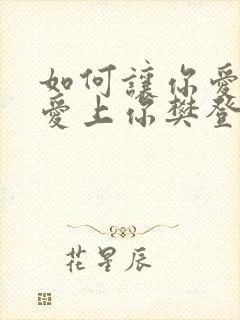 如何讓你愛
愛上你樊登
花星辰